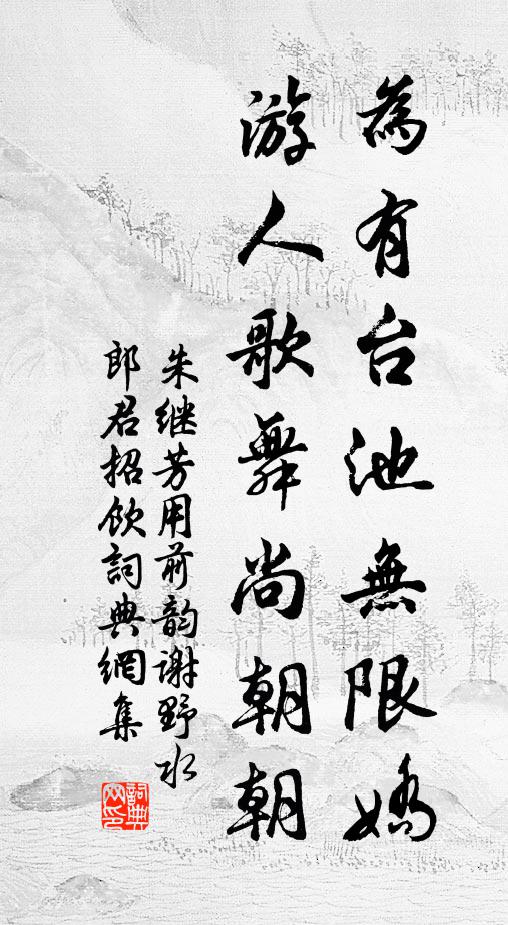 為有台池無限嬌
游人歌舞尚朝朝
朱继芳用前韵謝野水
郎君招飲詞典網集
詞典網印